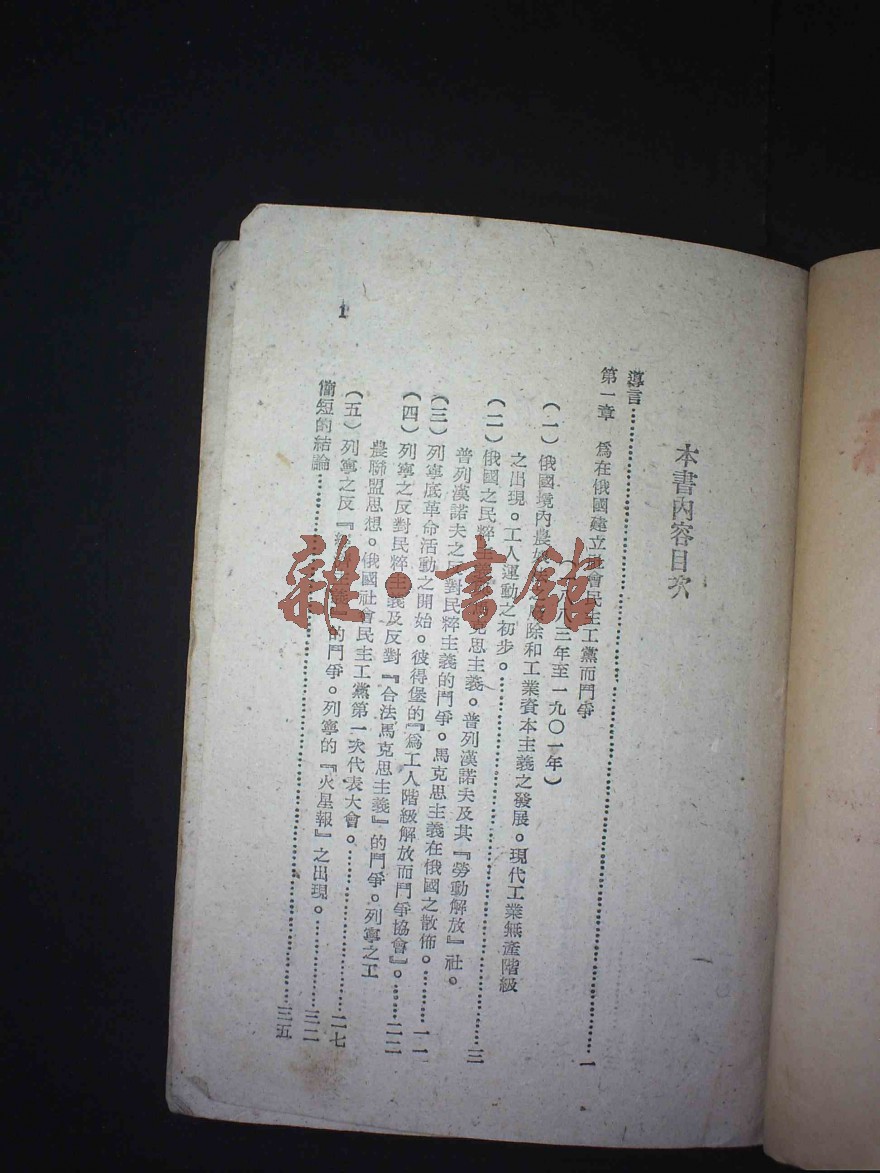 本書內容目次
導言……………………一
第一章 爲在俄國建立社會民主工黨而鬥爭
八三年至一九〇一年）
（一）俄國境內農 除和工業資本主義之發展。現代工業無產階級
之出現。工人運動之初步。……………………三
（二）俄國之民粹主 克思主義。普列漢諾夫及其『勞動解放』社。
普列漢諾夫之反對民粹主義的鬥爭。馬克思主義在俄國之散佈。………一一
（三）列寧底革命活動之開始。彼得堡的『爲工人階級解放而鬥爭協會』。……二二
（四）列寧之反對民粹主義及反對『合法馬克思主義』的鬥爭。列寧之工
農聯盟思想。俄國社會民主工黨第一次代表大會。……………………二七
（五）列寧之反『 』的鬥爭。列寧的『火星報』之出現。…………三二
簡短的結論……………………三五
1
雜·書館